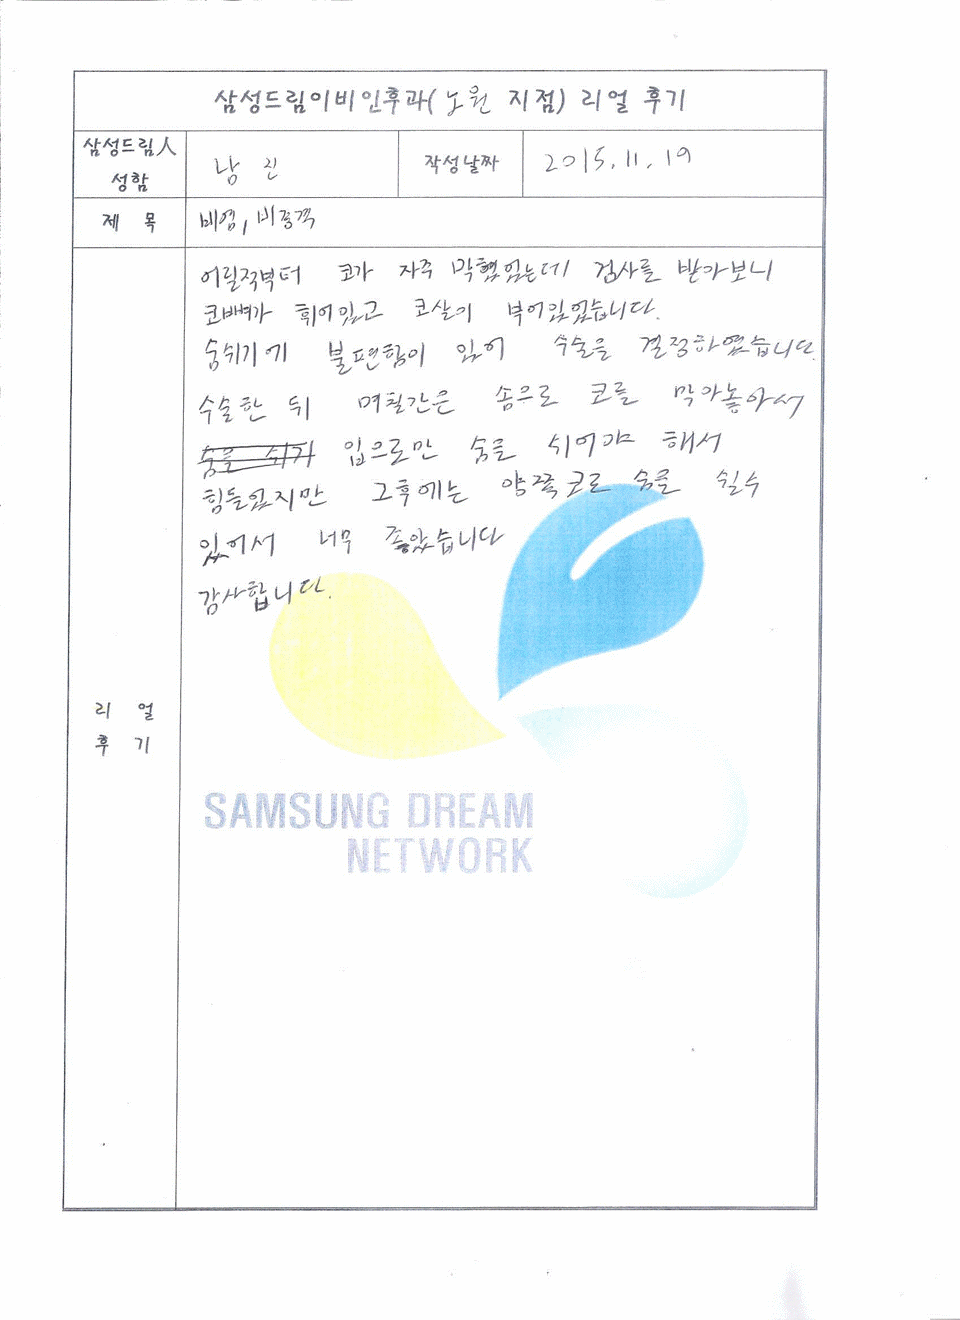 삼성드림이비인후과(노원 지점) 리얼 후기
삼성드림人 성함
남 진
작성날짜
2015.11.19
제 목
비염, 비중격
어릴적부터 코가 자주 막혔었는데 검사를 받아보니
코뼈가 휘어있고 코살이 부어있었습니다.
숨쉬기에 불편함이 있어 수술을 결정하였습니다.
수술한 뒤 며칠간은 솜으로 코를 막아놓아서
숨을 쉬기 입으로만 숨을 쉬어야 해서
힘들었지만 그후에는 양쪽코로 숨을 쉴수
있어서 너무 좋았습니다
감사합니다.
리 얼
후 기
SAMSUNG DREAM
NETWORK